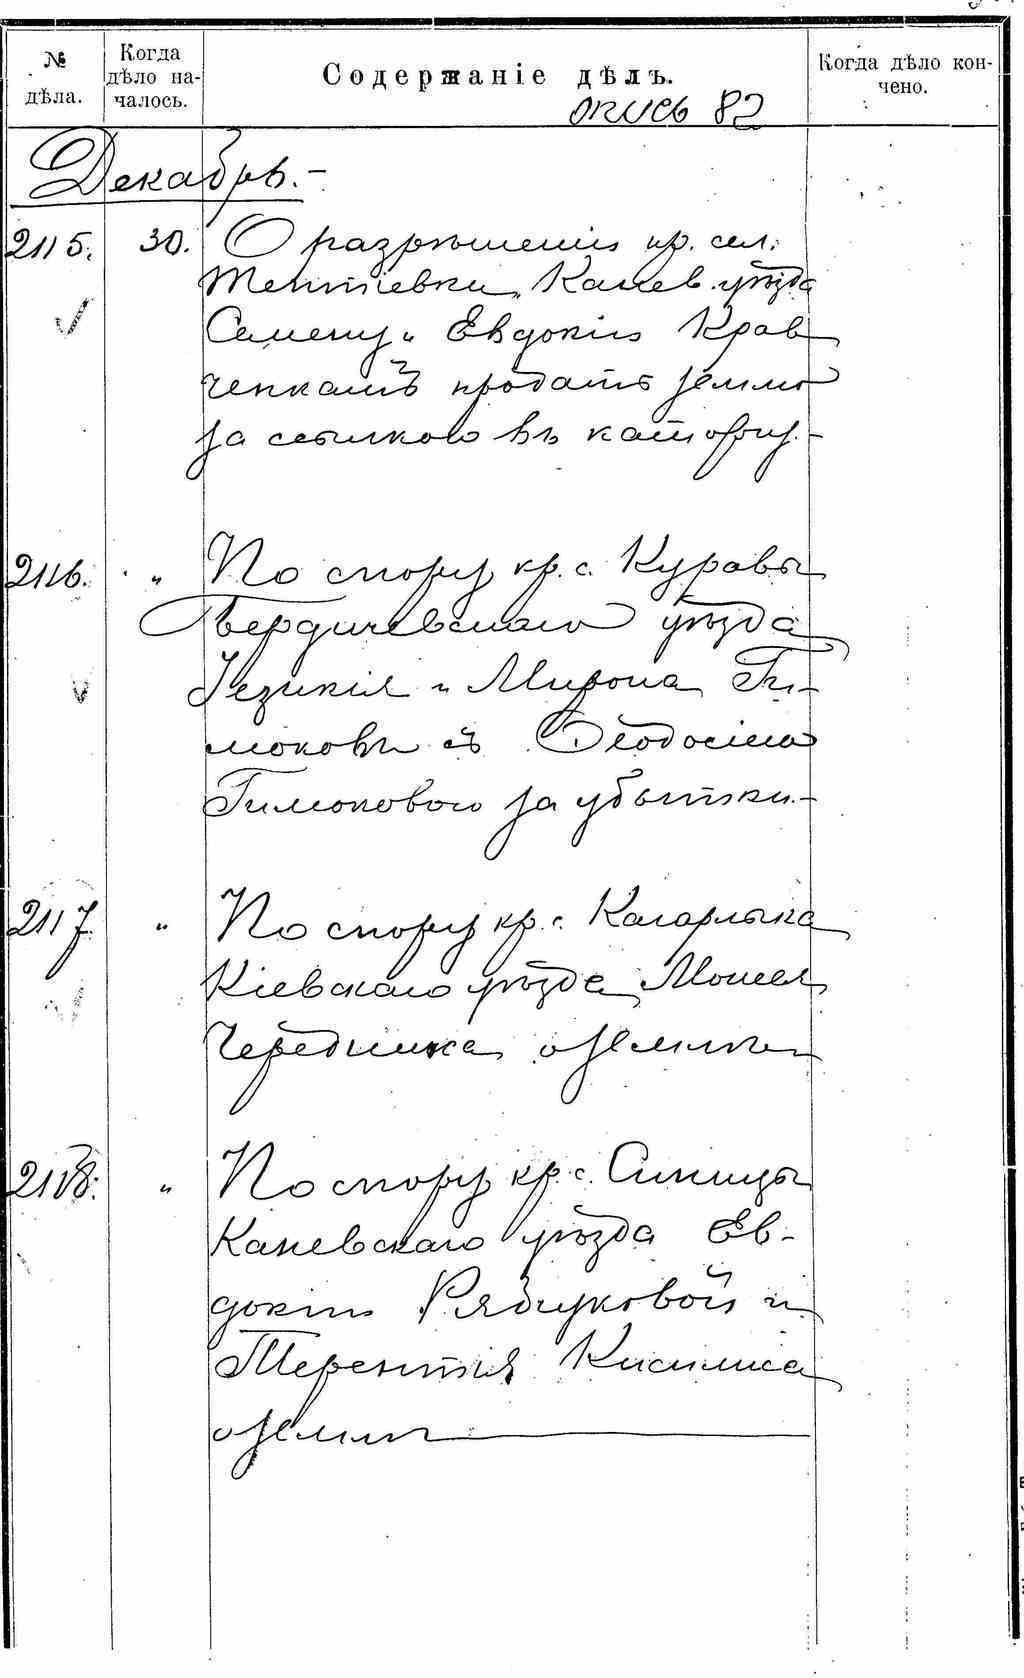 № дѣла.
Когда дѣло на-чалось.
Содержаніе дѣлъ.
Когда дѣло кон-чено.
опись 82
Декабрь.-
2115. 30. О разрѣшеніи кр. сел.
Тептіевки, Канев. уѣзда
Семену и Евдокіи Крав
ченкамъ продать землю
за ссылкою въ каторгу.-
2116. " По спору кр. с. Куравы
Бердичевскаго уѣзда
Іезикія и Мирона Ти-
моковъ съ Ѳеодосіею
Тимоковою за убытки.-
2117. " По спору кр. с. Кагарлыка
Кіевскаго уѣзда Моисея
Чередника о землѣ
2118. " По спору кр. с. Синицы
Каневскаго уѣзда Ев-
докіи Рябчуковой и
Терентія Кисилиса
о землѣ